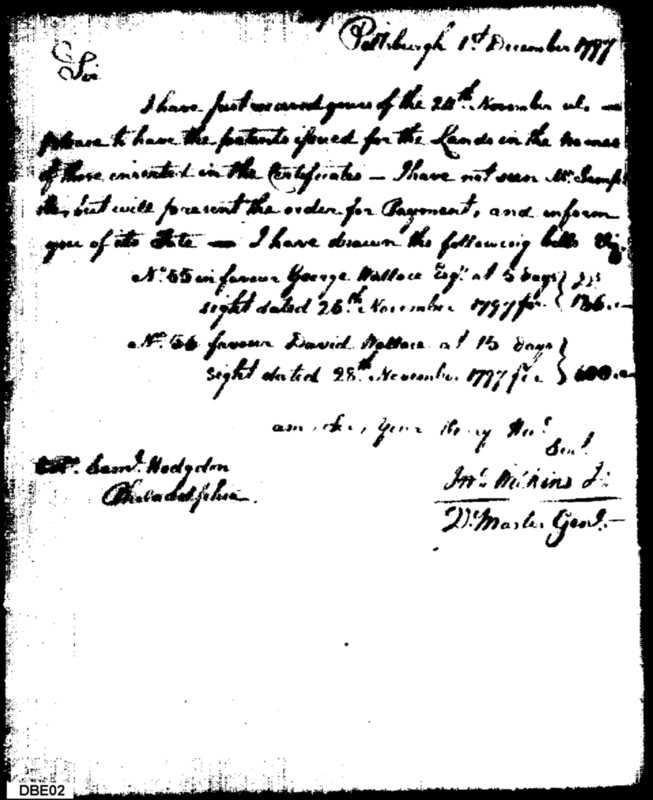 Pittsburgh 1st December 1797
Sir
I have just received yours of the 24th November ulo —
please to have the patents issued for the Lands in the names
of those inserted in the Certificates — I have not seen Mr. Samp
but will present the order for Payment, and inform
you of its Fate — I have drawn the following bills Viz.
No. 55 in favour George Wallace Esqr. at 5 days
sight dated 26th November 1797 for
No. 56 favour David Wallace at 15 days
sight dated 28th November 1797 for 600
am, Sir, Your Very Hue.
Sert.
Saml. Hodgdon
Philadelphia.
Jno. Wilkins Jr.
Qr. Master Genl.
DBE02